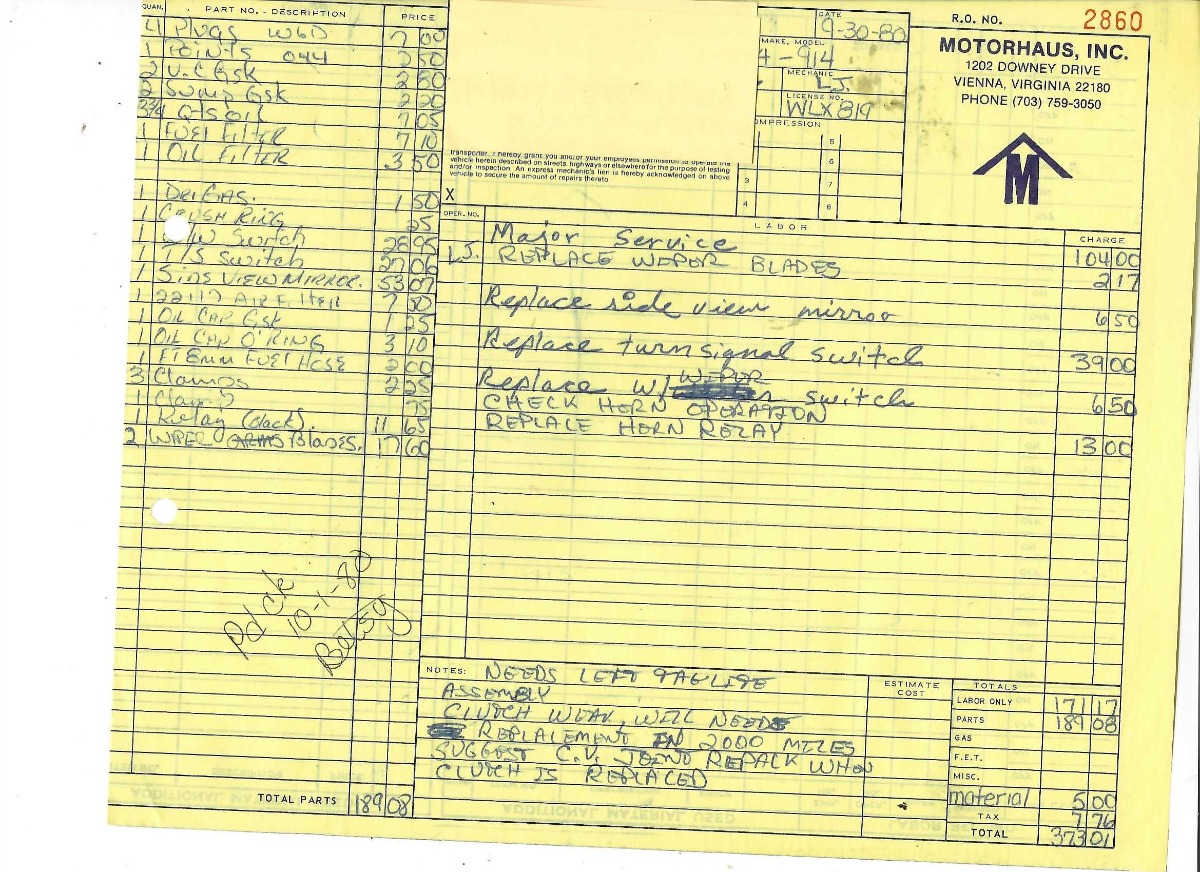 QUAN. PART NO. - DESCRIPTION PRICE
4 Plugs W6D 7 00
1 Points 044 3 50
2 V.C Gsk 2 80
2 Sump Gsk 2 20
3 3/4 Qts oil 7 05
1 FUEL FILTER 7 10
1 OIL FILTER 3 50
1 DRIGAS. 1 50
1 CRUSH RING 25
1 W Switch 28 95
1 T/S Switch 27 06
1 SIDE VIEW MIRROR. 53 07
1 22117 AIR Filter 7 00
1 OIL CAP Gsk 1 25
1 OIL CAP O'RING 3 10
1 FT 8MM FUEL HOSE 2 00
3 Clamps 2 25
1 Clamp 75
1 Relay (black). 11 65
2 WIPER Blades. 17 60
Pd ck
10-1-80
Betsy
TOTAL PARTS 189 08
transporter. I hereby grant you and/or your employees permission to operate the
vehicle herein described on streets, highways or elsewhere for the purpose of testing
and/or inspection. An express mechanic's lien is hereby acknowledged on above
vehicle to secure the amount of repairs thereto.
X
DATE
9-30-80
MAKE, MODEL
4-914
MECHANIC
L.J.
LICENSE NO.
WLX819
OMPRESSION
5
6
3 7
4 8
R.O. NO. 2860
MOTORHAUS, INC.
1202 DOWNEY DRIVE
VIENNA, VIRGINIA 22180
PHONE (703) 759-3050
M
OPER. NO. LABOR CHARGE
Major Service 104 00
L.J. REPLACE WIPOR BLADES 2 17
Replace side view mirror 6 50
Replace turn signal switch 39 00
Replace W/ WIPOR switch 6 50
CHECK HORN OPERATION
REPLACE HORN RELAY 13 00
NOTES: NEEDS LEFT TAGLITE
ASSEMBLY
CLUTCH WEAK, WILL NEED
REPLACEMENT IN 2000 MILES
SUGGEST C.V. JOINT REPACK WHEN
CLUTCH IS REPLACED
ESTIMATE
COST
TOTALS
LABOR ONLY 171 17
PARTS 189 08
GAS
F.E.T.
MISC.
material 5 00
TAX 7 76
TOTAL 373 01